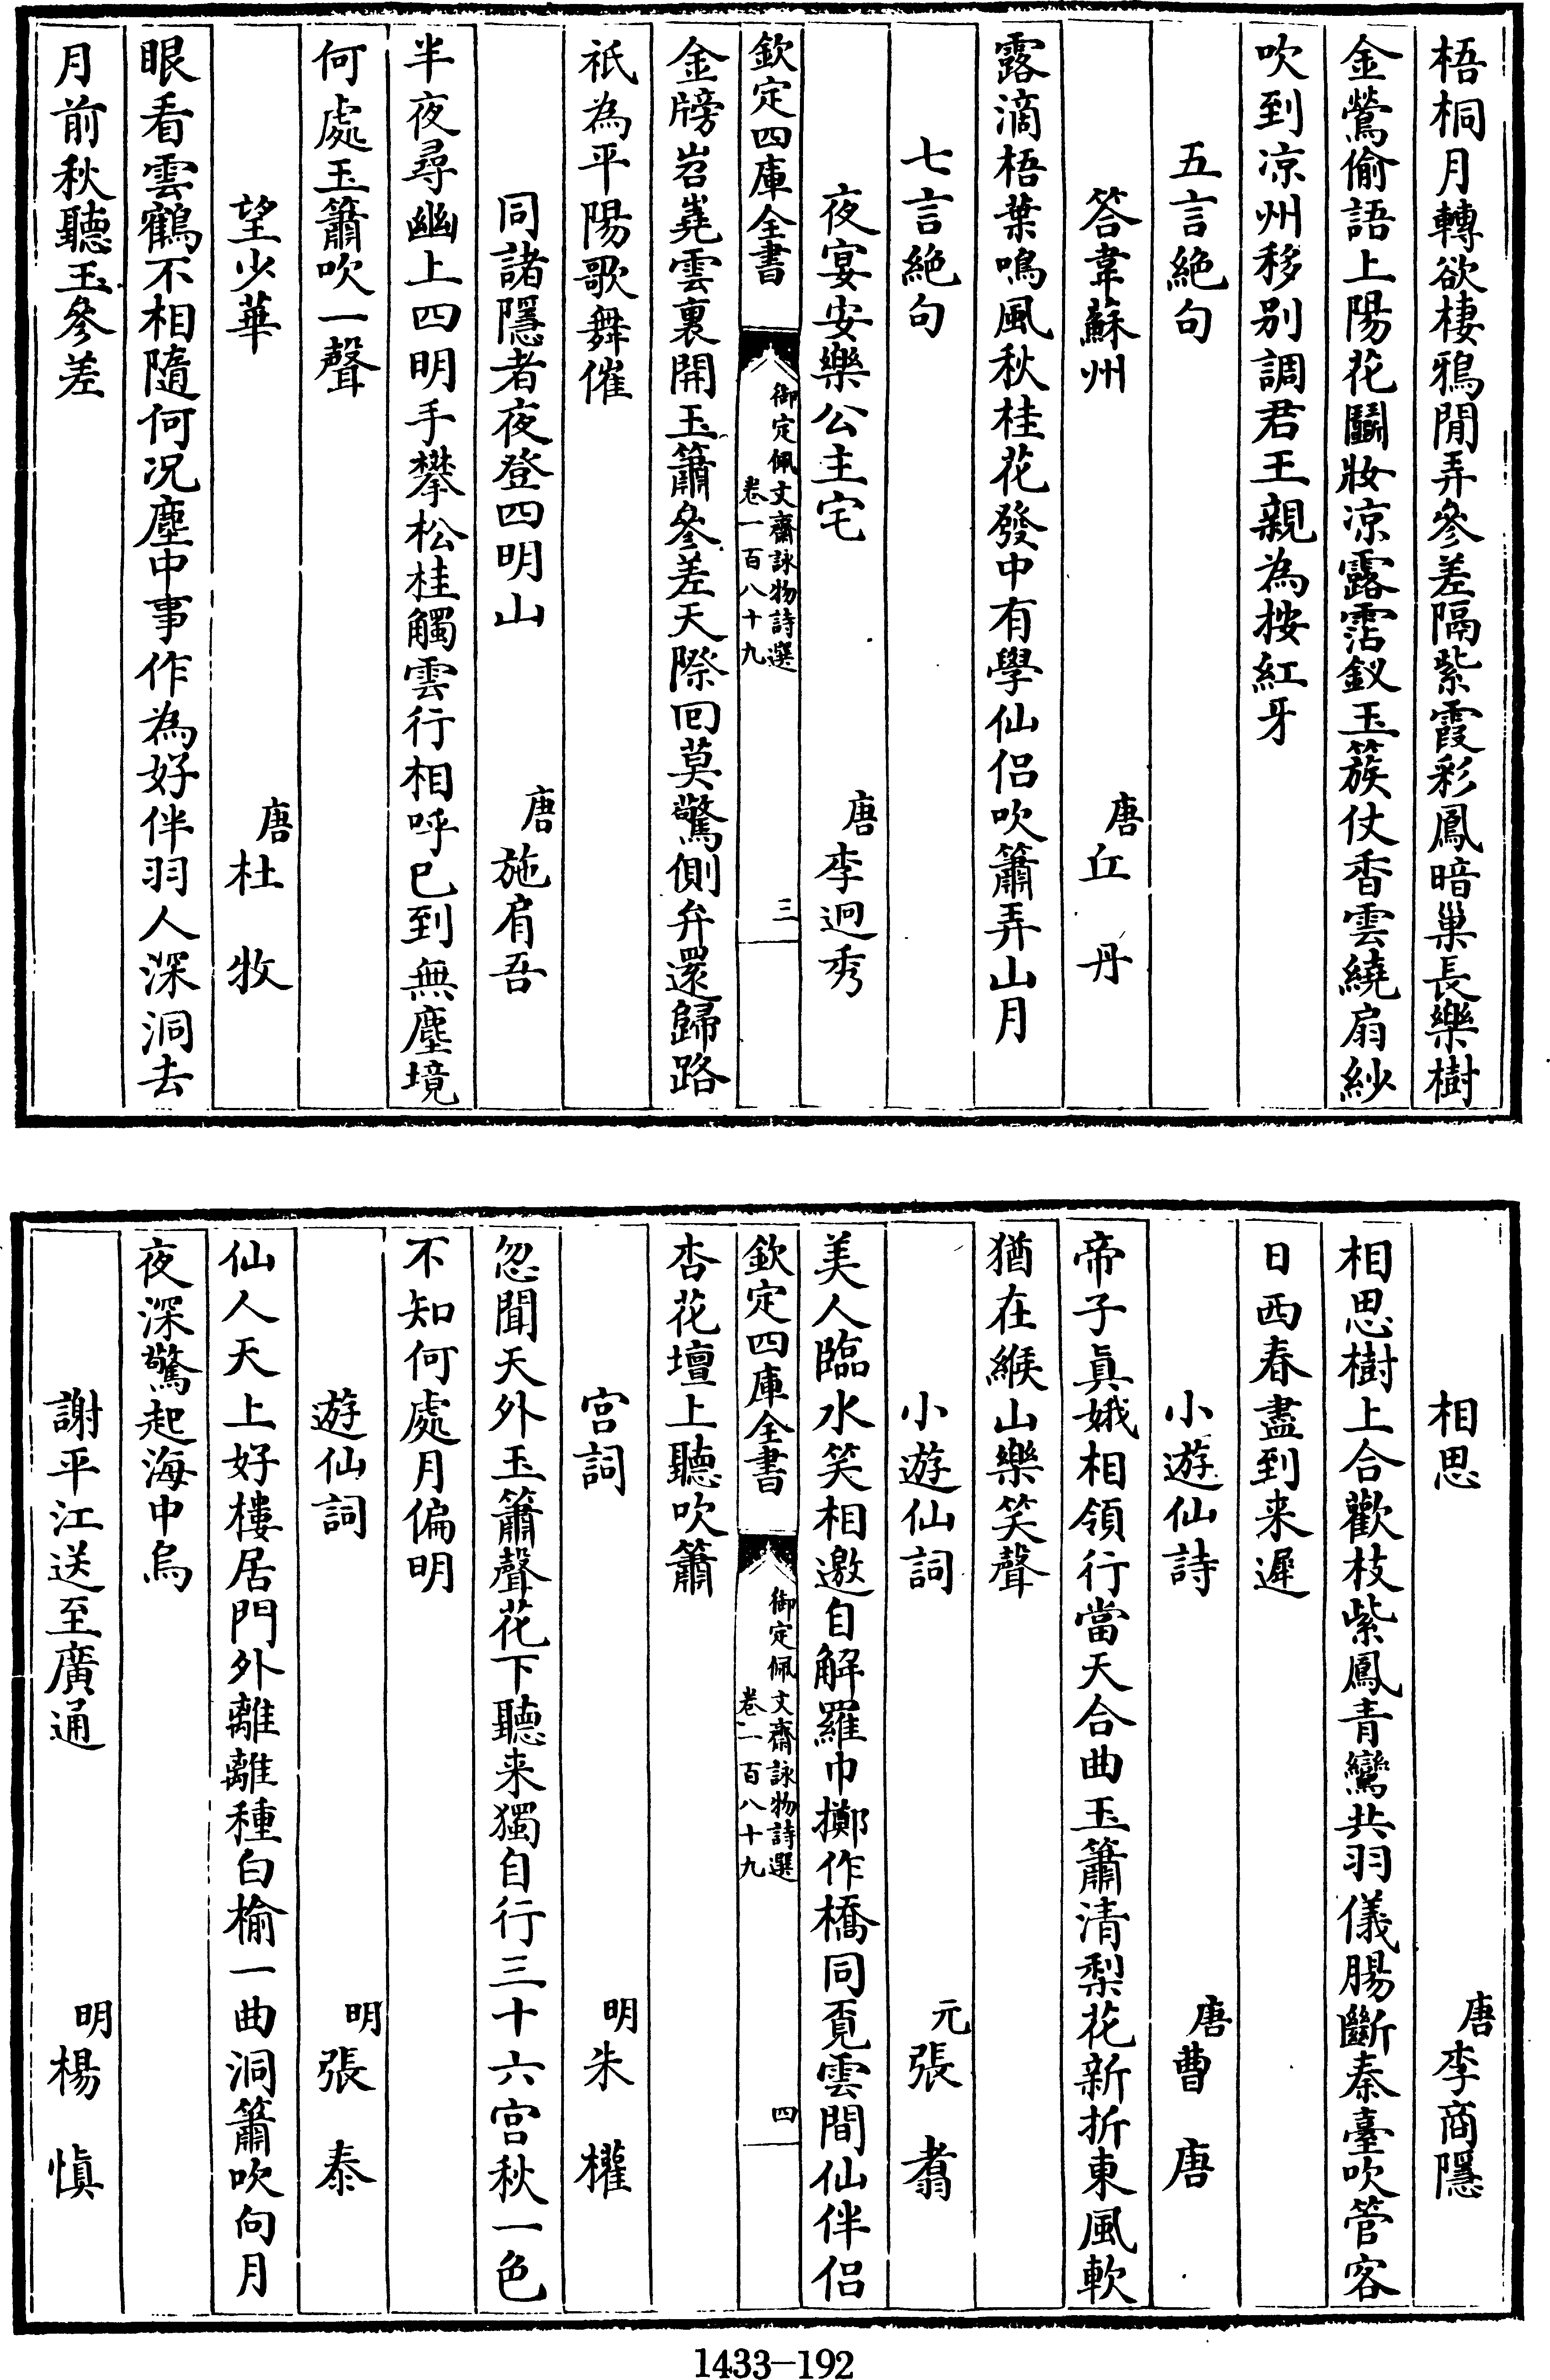 梧桐月轉欲棲鴉閒弄參差隔紫霞彩鳳暗巢長樂樹
金鶯偷語上陽花鬬妝凉露霑釵玉簇仗香雲繞扇紗
吹到凉州移别調君王親為按紅牙
五言絶句
答韋蘇州 唐丘丹
露滴梧葉鳴風秋桂花發中有學仙侣吹簫弄山月
七言絶句
夜宴安樂公主宅 唐李迥秀
欽定四庫全書 御定佩文齋詠物詩選 卷一百八十九 三
金牓岧嶤雲裏開玉簫參差天際回莫驚側弁還歸路
祇為平陽歌舞催
同諸隱者夜登四明山 唐施肩吾
半夜尋幽上四明手攀松桂觸雲行相呼已到無塵境
何處玉簫吹一聲
望少華 唐杜牧
眼看雲鶴不相隨何况塵中事作為好伴羽人深洞去
月前秋聽玉參差
相思 唐李商隱
相思樹上合歡枝紫鳳青鸞共羽儀腸斷秦臺吹管客
日西春盡到来遲
小遊仙詩 唐曹唐
帝子真娥相領行當天合曲玉簫清梨花新折東風軟
猶在緱山樂笑聲
小遊仙詞 元張翥
美人臨水笑相邀自解羅巾擲作橋同覓雲間仙伴侣
欽定四庫全書 御定佩文齋詠物詩選 卷一百八十九 四
杏花壇上聽吹簫
宫詞 明朱權
忽聞天外玉簫聲花下聽来獨自行三十六宫秋一色
不知何處月偏明
遊仙詞 明張泰
仙人天上好樓居門外離離種白榆一曲洞簫吹向月
夜深驚起海中烏
謝平江送至廣通 明楊慎
1433-192